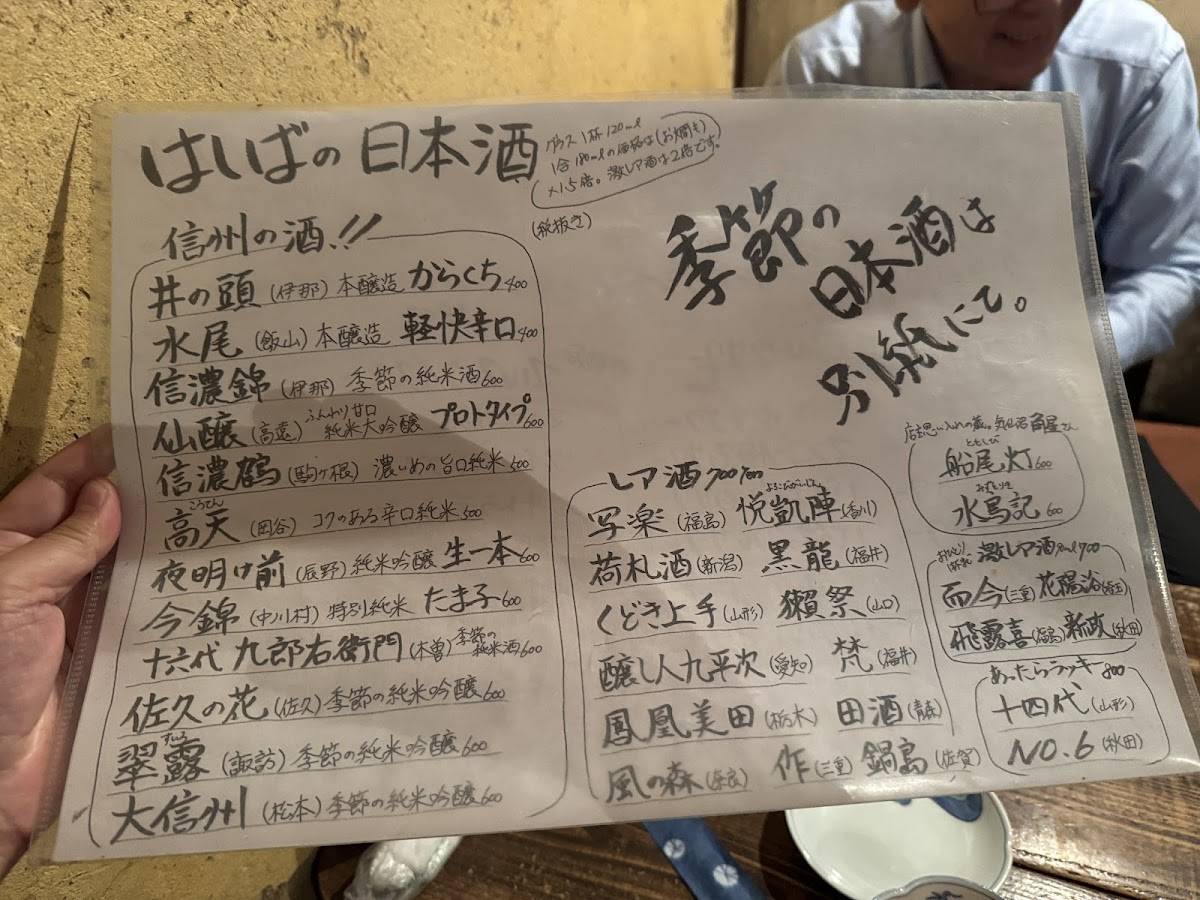 はしばの日本酒
グラス1杯120ml
1合180mlの価格は(お燗も)
×1.5倍。激レア酒は2倍です。
(税抜き)
信州の酒!!
井の頭(伊那)本醸造 からくち400
水尾(飯山)本醸造 軽快辛口400
信濃錦(伊那)季節の純米酒600
仙醸(高遠)ふんわり甘口 純米大吟醸 プロトタイプ600
信濃鶴(駒ヶ根)濃いめの旨口純米500
こうてん
高天(岡谷)コクのある辛口純米500
夜明け前(辰野)純米吟醸 生一本600
今錦(中川村)特別純米 たま子600
十六代 九郎右衛門(木曽)季節の純米酒600
佐久の花(佐久)季節の純米吟醸600
すいろ
翠露(諏訪)季節の純米吟醸600
大信州(松本)季節の純米吟醸600
季節の
日本酒は
別紙にて。
レア酒700
写楽(福島)
よろこびがいじん
悦凱陣(香川)
荷札酒(新潟) 黒龍(福井)
くどき上手(山形) 獺祭(山口)
醸し人九平次(愛知) 梵(福井)
鳳凰美田(栃木) 田酒(青森)
風の森(奈良) 作(三重) 鍋島(佐賀)
店主思い入れの蔵。気仙沼 角星さん
ともしび
船尾灯600
みずとりき
水鳥記600
激レア酒 700
而今(三重) 花陽浴(埼玉)
飛露喜(福島) 新政(秋田)
あったらラッキー800
十四代(山形)
NO.6(秋田)